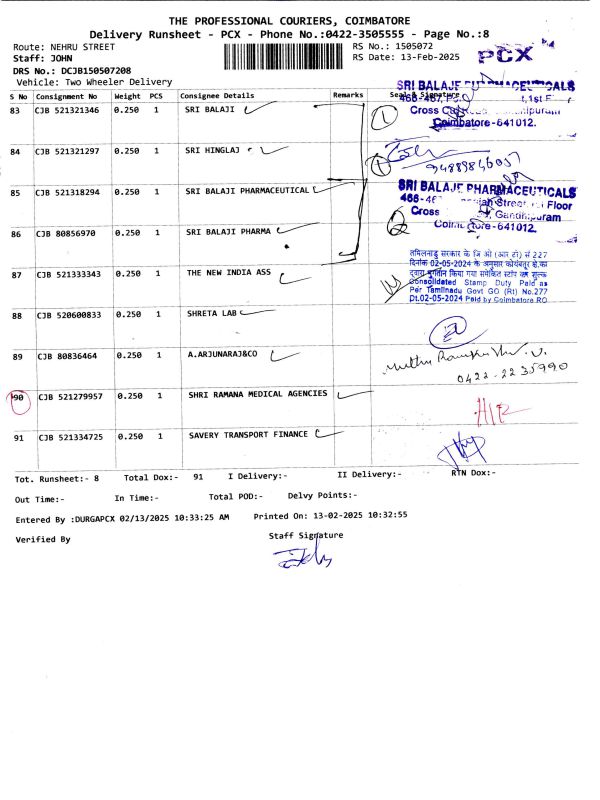 THE PROFESSIONAL COURIERS, COIMBATORE
Delivery Runsheet - PCX - Phone No.:0422-3505555 - Page No.:8
Route: NEHRU STREET
RS No.: 1505072
Staff: JOHN
RS Date: 13-Feb-2025
PCX
DRS No.: DCJB150507208
Vehicle: Two Wheeler Delivery
S No Consignment No Weight PCS Consignee Details Remarks Seal & Signature
SRI BALAJI PHARMACEUTICALS
83 CJB 521321346 0.250 1 SRI BALAJI
1
Coimbatore-641012.
84 CJB 521321297 0.250 1 SRI HINGLAJ
1
85 CJB 521318294 0.250 1 SRI BALAJI PHARMACEUTICAL
SRI BALAJI PHARMACEUTICALS
Street, Floor
Cross Gandhipuram
Coimbatore-641012.
86 CJB 80856970 0.250 1 SRI BALAJI PHARMA
2
87 CJB 521333343 0.250 1 THE NEW INDIA ASS
Consolidated Stamp Duty Paid as
Per Tamilnadu Govt GO (Rt) No.277
Dt.02-05-2024 Paid by Coimbatore RO
88 CJB 520600833 0.250 1 SHRETA LAB
89 CJB 80836464 0.250 1 A.ARJUNARAJ&CO
0422-2235990
90 CJB 521279957 0.250 1 SHRI RAMANA MEDICAL AGENCIES
91 CJB 521334725 0.250 1 SAVERY TRANSPORT FINANCE
Tot. Runsheet:- 8 Total Dox:- 91 I Delivery:- II Delivery:- RTN Dox:-
Out Time:- In Time:- Total POD:- Delvy Points:-
Entered By :DURGAPCX 02/13/2025 10:33:25 AM Printed On: 13-02-2025 10:32:55
Verified By
Staff Signature